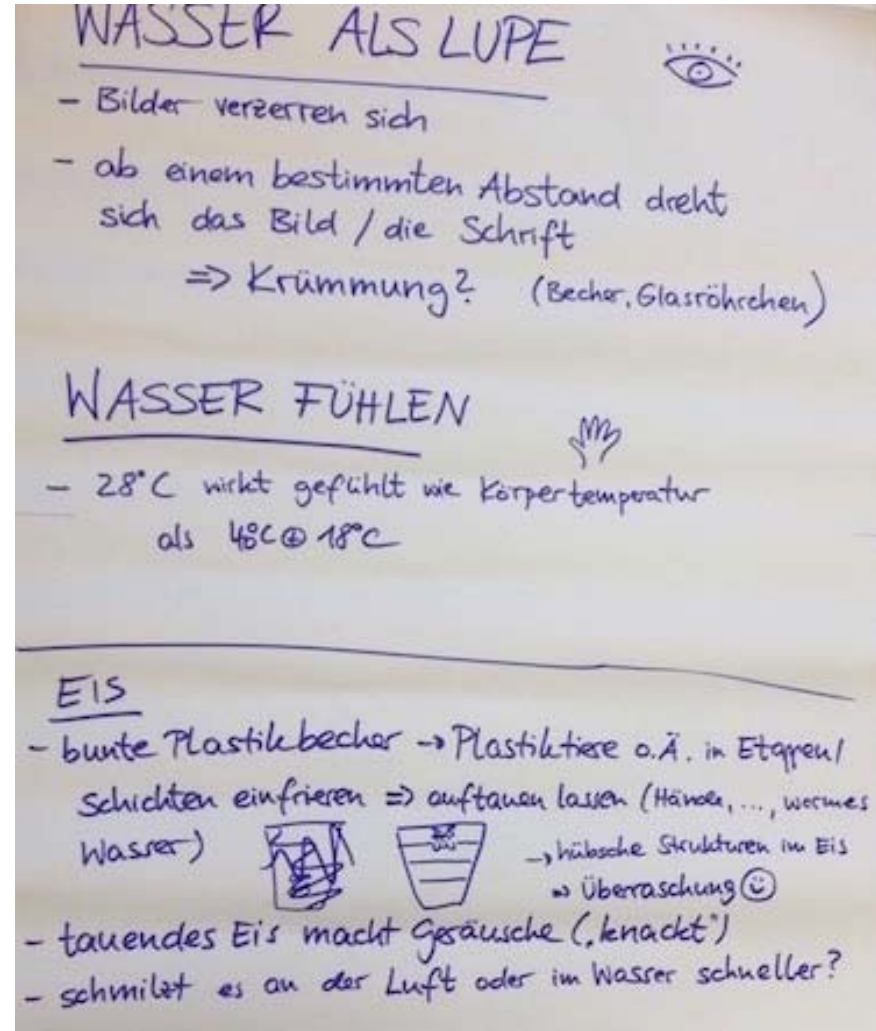 WASSER ALS LUPE
- Bilder verzerren sich
- ab einem bestimmten Abstand dreht
sich das Bild / die Schrift
=> Krümmung? (Becher, Glasröhrchen)
WASSER FÜHLEN
- 28°C wirkt gefühlt wie Körpertemperatur
als 48°C ⊕ 18°C
EIS
- bunte Plastikbecher → Plastiktiere o.Ä. in Etappen/
Schichten einfrieren => auftauen lassen (Hände, ..., warmes
Wasser) → hübsche Strukturen im Eis
⇒ Überraschung ☺
- tauendes Eis macht Geräusche ("knackt")
- schmilzt es an der Luft oder im Wasser schneller?